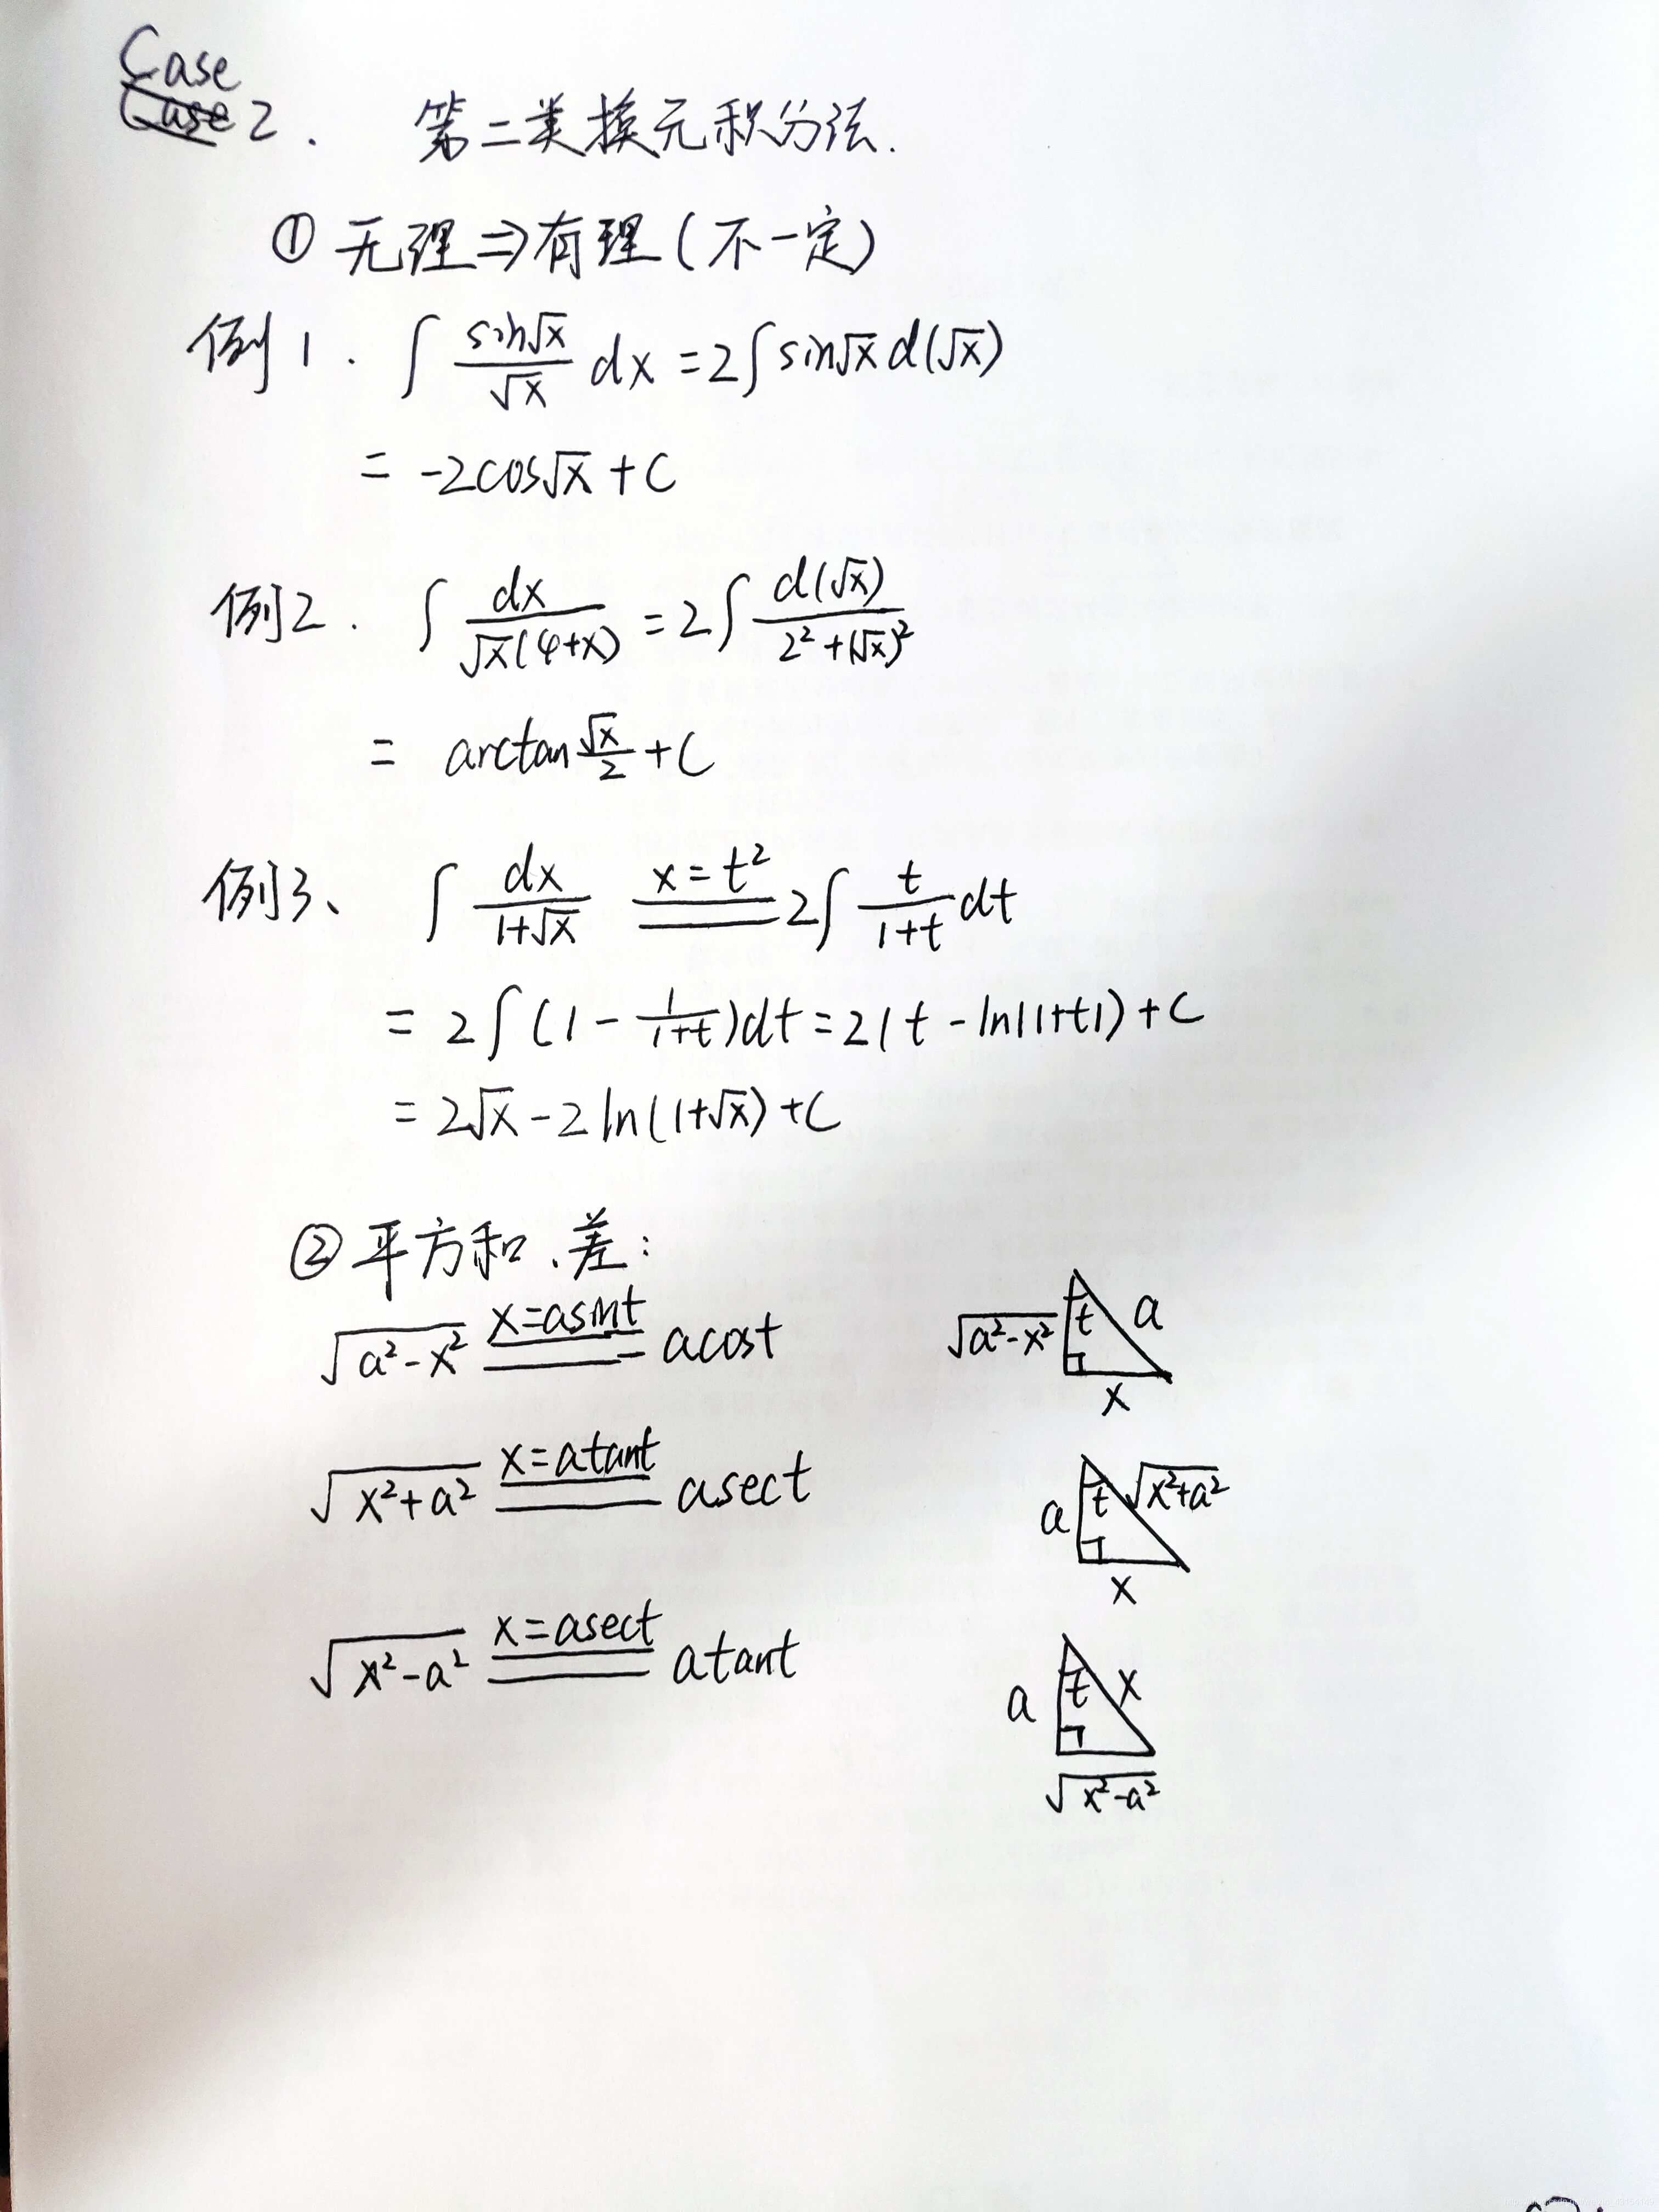 Case
Case 2. 第二类换元积分法.
① 无理⇒有理(不一定)
例1. ∫ sin√x/√x dx = 2∫sin√x d(√x)
= -2cos√x + C
例2. ∫ dx/(√x(4+x)) = 2∫ d(√x)/(2²+(√x)²)
= arctan √x/2 + C
例3、 ∫ dx/(1+√x) x=t² 2∫ t/(1+t) dt
= 2∫(1 - 1/(1+t))dt = 2(t - ln|1+t|) + C
= 2√x - 2ln(1+√x) + C
② 平方和、差:
√(a²-x²) x=asint acost √(a²-x²) t a
x
√(x²+a²) x=atant asect a t √(x²+a²)
x
√(x²-a²) x=asect atant a t x
√(x²-a²)